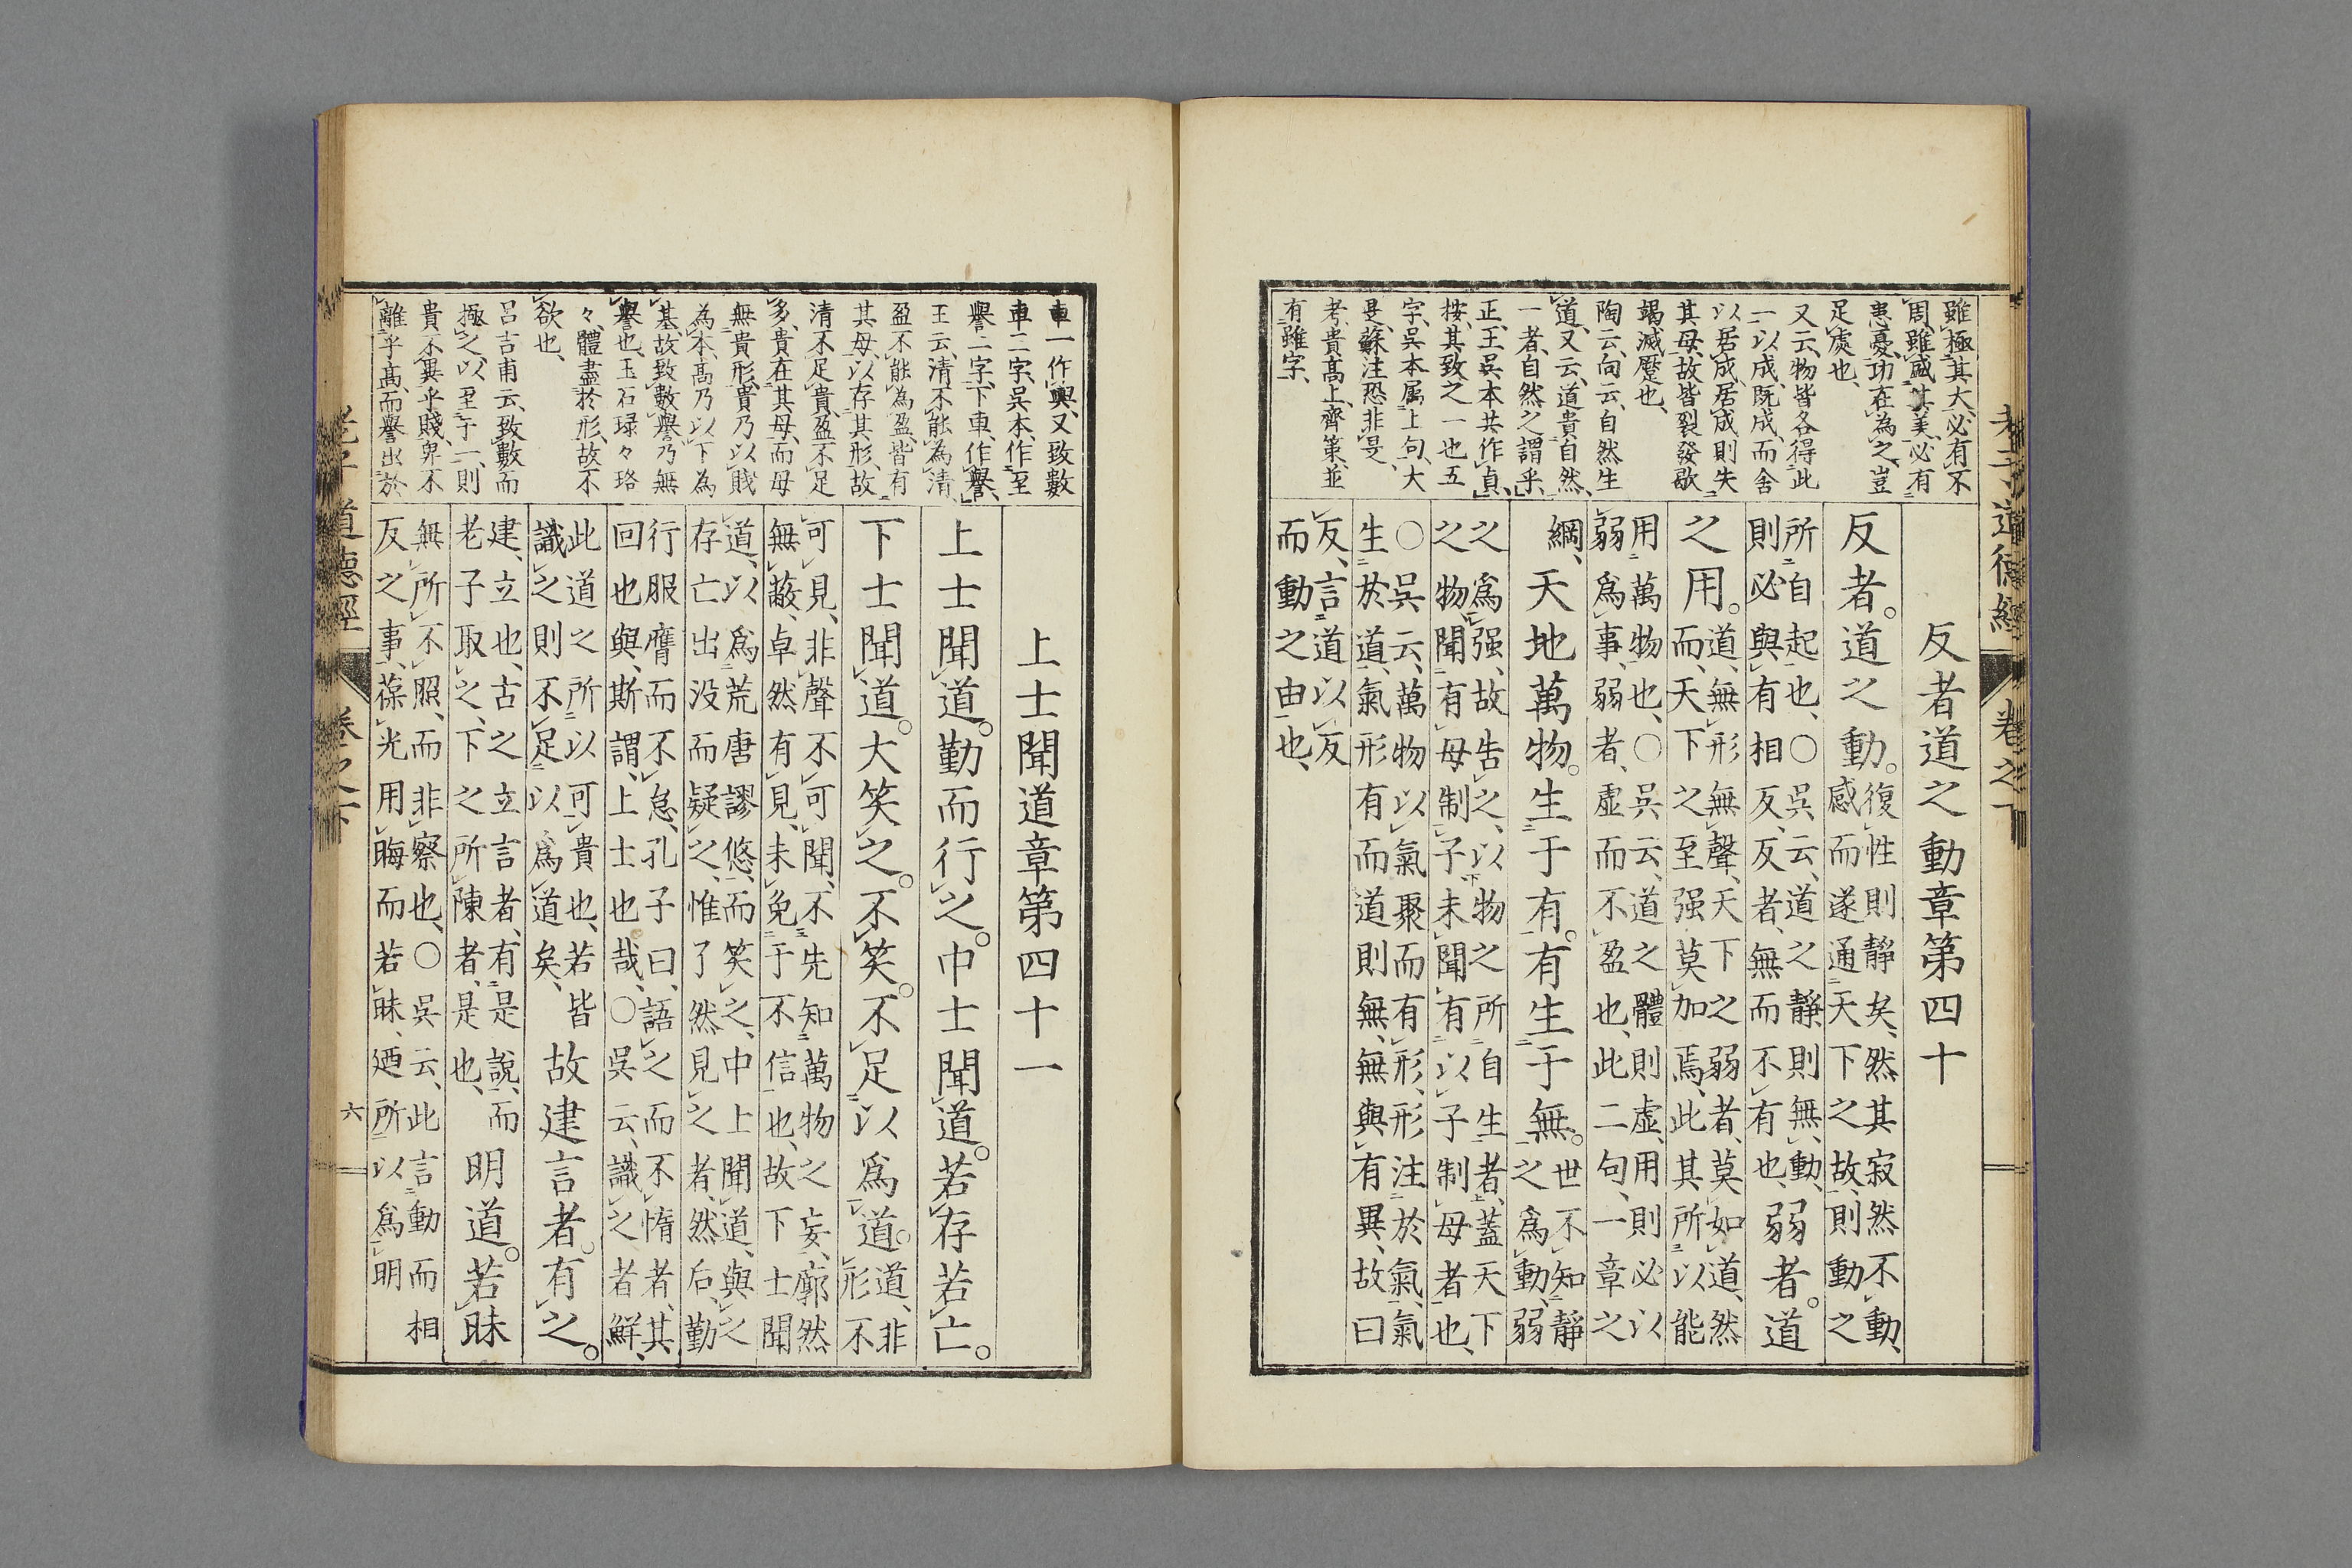 雖極其大、必有不
周、雖盛其美、必有
患憂、功在為之、豈
足處也、
又云、物皆各得此
一以成、既成、而舍
以居成、居成則失
其母、故皆裂發歇
竭滅蹷也、
陶云、向云、自然生
道、又云、道貴自然、
一者、自然之謂乎、
正、王、呉本共作貞、
按、其致之一也五
字、呉本属上句、大
是、蘇注恐非是、
考、貴高上、齊策、並
有雖字、
老子道德經 卷之下
反者道之動章第四十
反者。道之動。復性則靜矣、然其寂然不動、
感而遂通天下之故、則動之
所自起也、〇呉云、道之靜則無、動、
則必與有相反、反者、無而不有也、弱者。道
之用。道無形無聲、天下之弱者、莫如道、然
而天下之至强莫加焉、此其所以能
用萬物也、〇呉云、道之體則虚、用則必以
弱爲事、弱者、虚而不盈也、此二句、一章之
綱、天地萬物。生于有。有生于無。世不知靜
之爲動、弱
之爲强、故告之、以物之所自生者、蓋天下
之物聞有母制子、未聞有以子制母者也、
〇呉云、萬物以氣聚而有形、形注於氣、氣
生於道、氣形有而道則無、無與有異、故曰
反、言道以反
而動之由也、
車一作輿、又致數
車二字、呉本、作至
譽二字、下車、作譽、
王云、清不能為清、
盈不能為盈、皆有
其母、以存其形、故
清不足貴、盈不足
多、貴在其母、而母
無貴形、貴乃以賤
為本、高乃以下為
基、故致數譽乃無
譽也、玉石琭々珞
々、體盡於形、故不
欲也、
呂吉甫云、致數而
極之、以至于一、則
貴不異乎賤、卑不
離乎高、而譽出於
上士聞道章第四十一
上士聞道。勤而行之。中士聞道。若存若亡。
下士聞道。大笑之。不笑。不足以爲道。道、非
形不
可見、非聲不可聞、不先知萬物之妄、廓然
無蔽、卓然有見、未免于不信也、故下士聞
道、以爲荒唐謬悠、而笑之、中士聞道、與之
存亡出沒而疑之、惟了然見之者、然后、勤
行服膺而不怠、孔子曰、語之而不惰者、其
回也與、斯謂、上士也哉、〇呉云、識之者鮮、
此道之所以可貴也、若皆
識之則不足以爲道矣、故建言者。有之。
建、立也、古之立言者、有是說、而
老子取之、下之所陳者、是也、明道。若昧
無所不照、而非察也、〇呉云、此言動而相
反之事、葆光用晦而若昧、廼所以爲明
老子道德經 卷之下 六